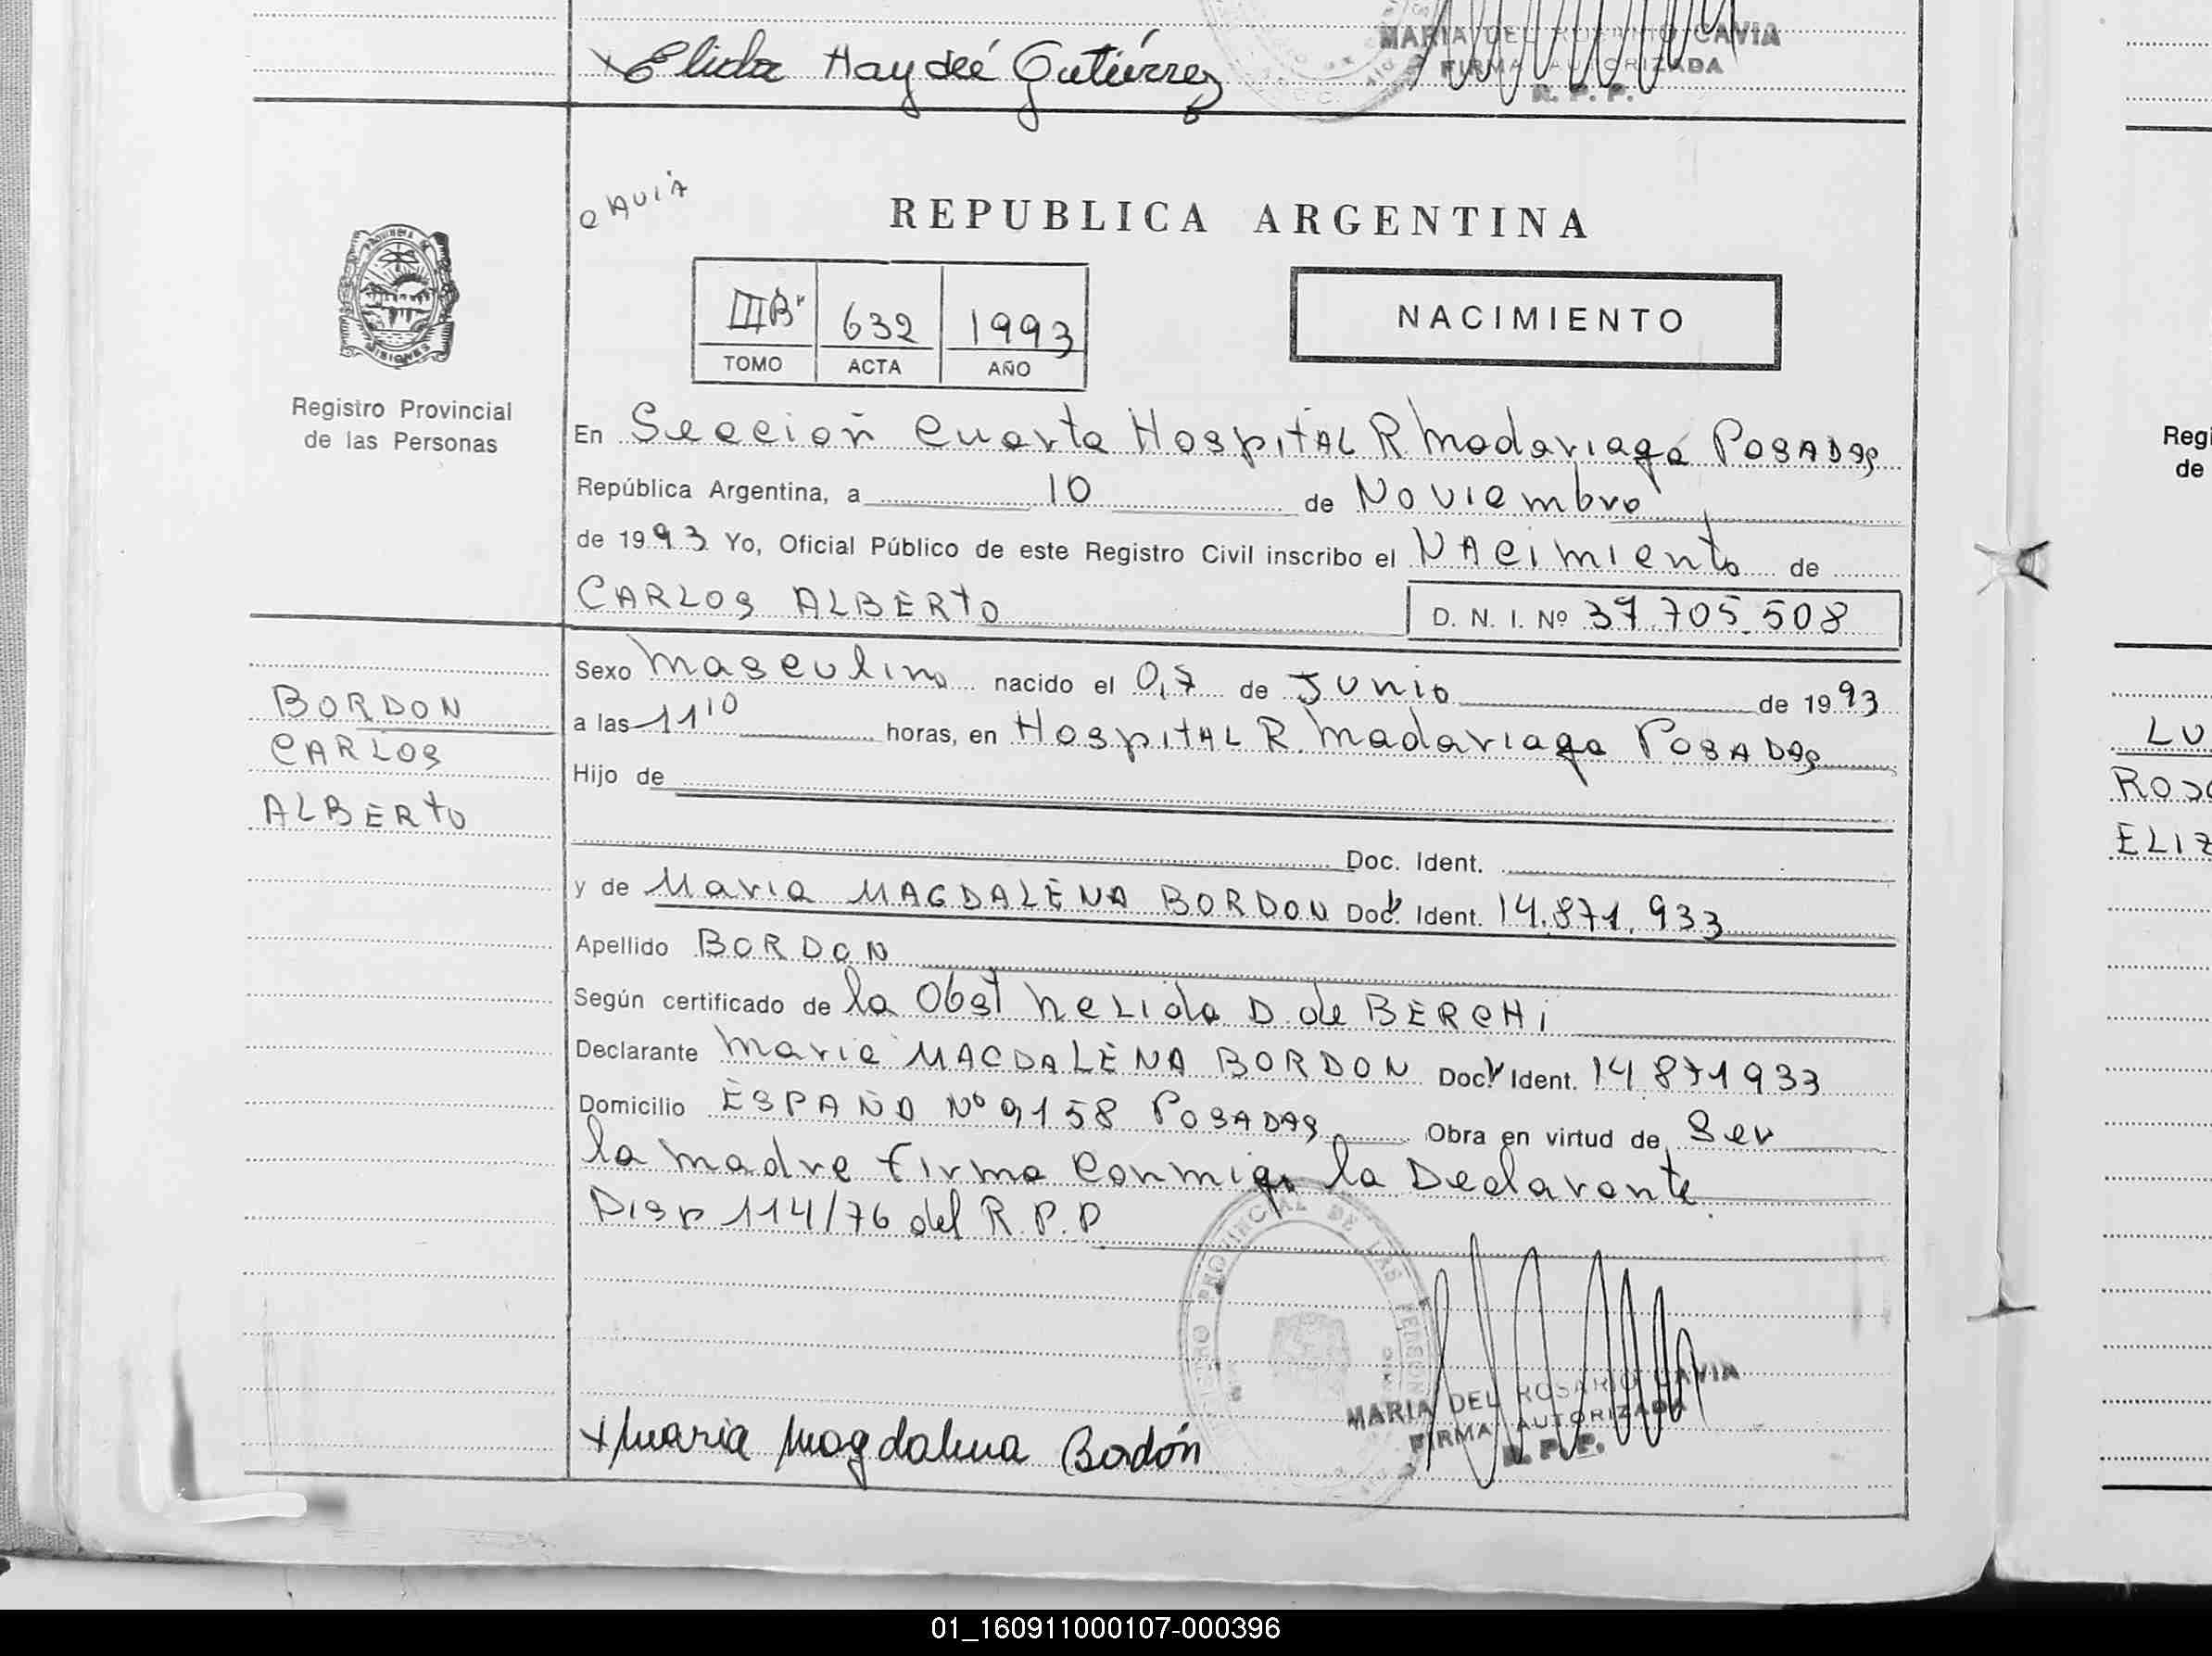 Elida Haydeé Gutiérrez
MARIA DEL ROSARIO CAVIA
FIRMA AUTORIZADA
R. P. P.
CAVIA
REPUBLICA ARGENTINA
PROVINCIA DE MISIONES
III B 632 1993
TOMO ACTA AÑO
NACIMIENTO
Registro Provincial
de las Personas
En Sección Cuarta Hospital R Madariaga Posadas
República Argentina, a 10 de Noviembre
de 1993 Yo, Oficial Público de este Registro Civil inscribo el Nacimiento de
CARLOS ALBERTO D. N. I. Nº 37.705.508
Sexo Masculino nacido el 07 de Junio de 1993
a las 11 10 horas, en Hospital R. Madariaga Posadas
Hijo de
Doc. Ident.
y de Maria MAGDALENA BORDON Doc. Ident. 14.871.933
Apellido BORDON
Según certificado de la Obst Nelida D. de BERCHI
Declarante Maria MAGDALENA BORDON Doc. Ident. 14 871933
Domicilio ESPAÑA Nº 9158 Posadas Obra en virtud de Ser
la madre Firma conmigo la Declarante.
Disp 114/76 del R. P. P
BORDON
CARLOS
ALBERTO
REGISTRO PROVINCIAL DE LAS PERSONAS
MARIA DEL ROSARIO CAVIA
FIRMA AUTORIZADA
R. P. P.
x Maria Magdalena Bordón
Regi
de
LU
ROS
ELIZ
01_160911000107-000396